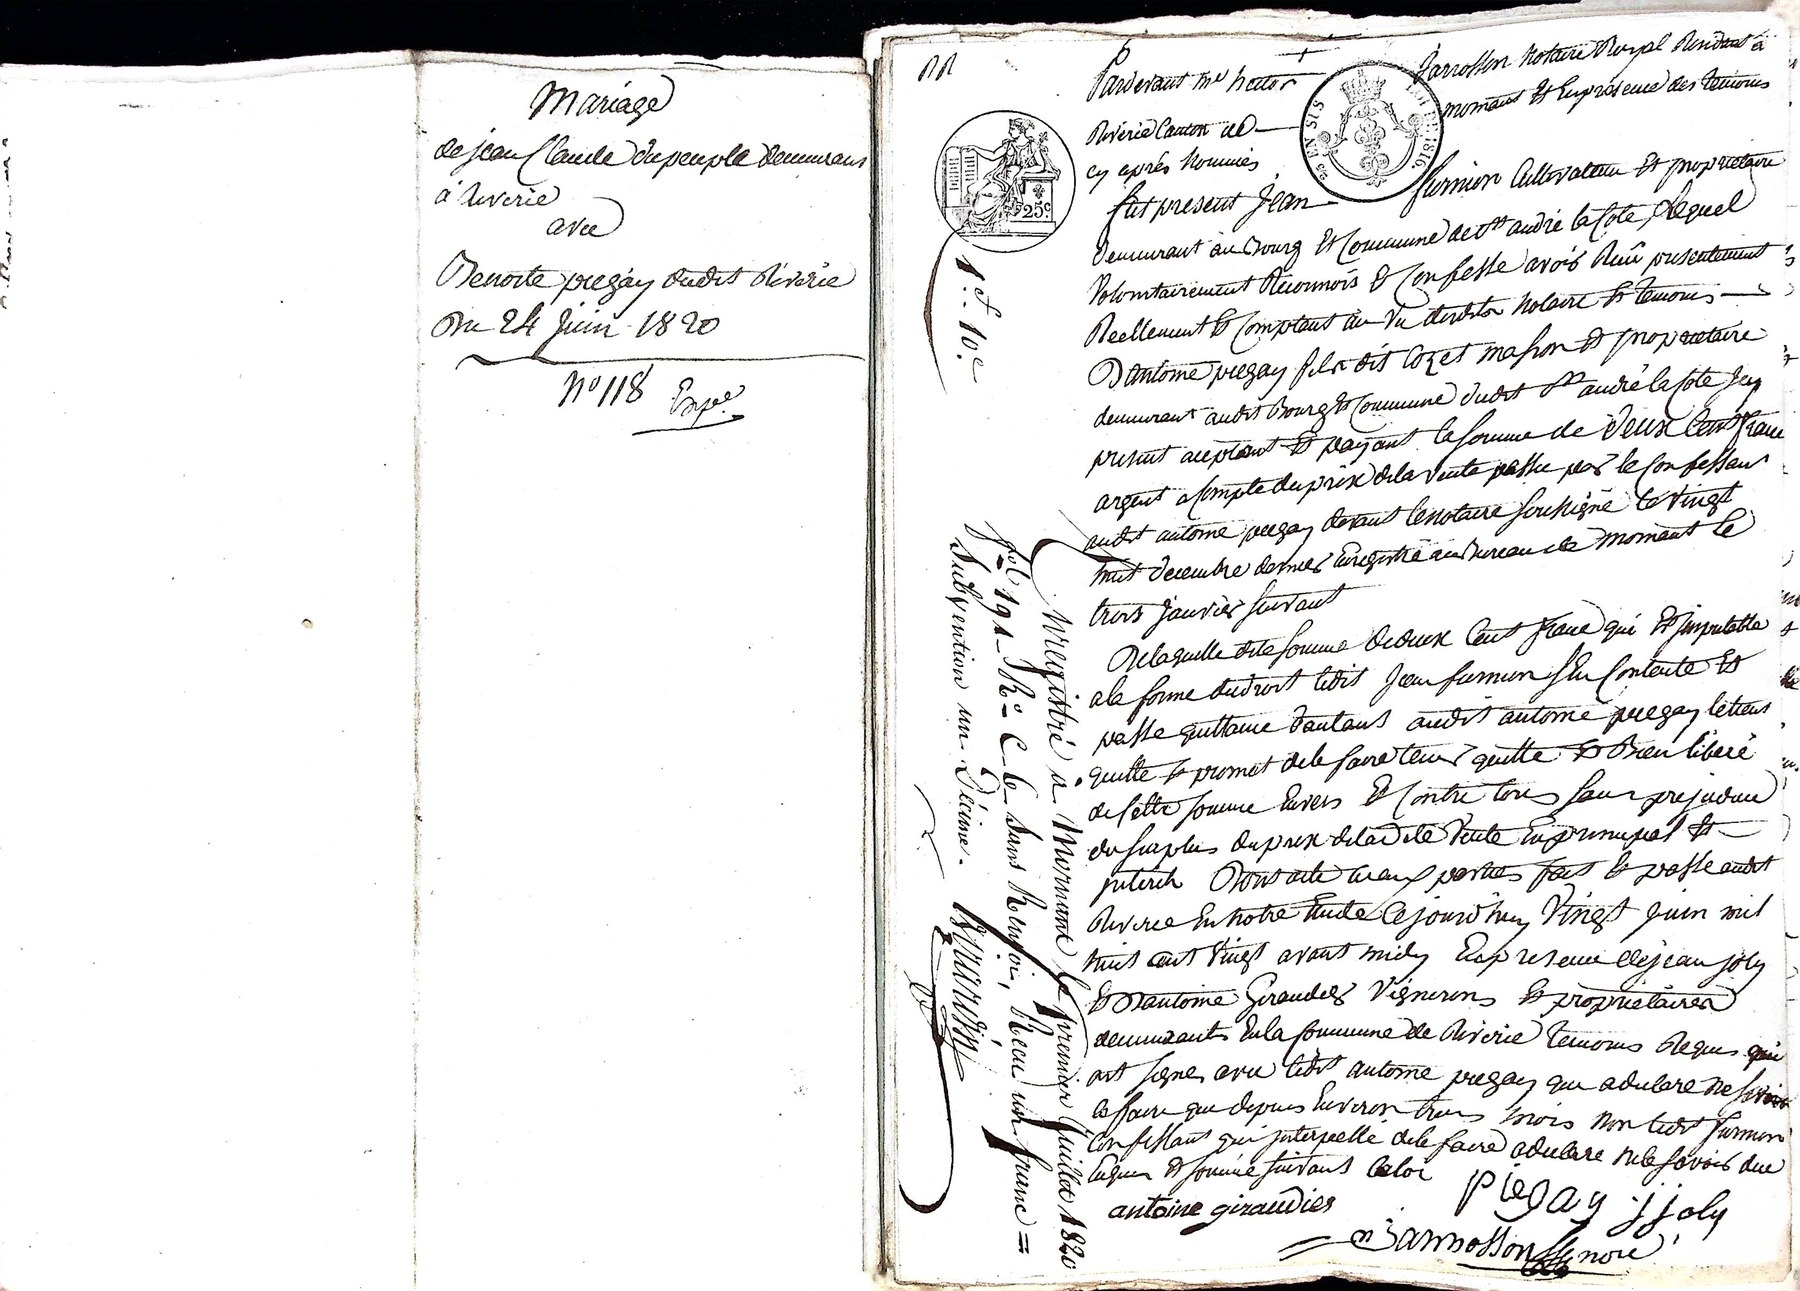 Mariage
de jean Claude dupeuple demeurant
à Riverie
avec
Benoite piegay dudit Riverie
Du 24 Juin 1820
N° 118
Exp.ée
Pardevant Me hector Jarrosson Notaire Royal Residant à
Riverie Canton de mornant Et En présence des temoins
cy après Nommés
fut present Jean furnion Cultivateur Et propriétaire
demeurant au Bourg Et Commune de St andré la Cote, Lequel
Volontairement Reconnois Et Confesse avoir Reçû presentement
Reellement Et Comptant au Vu desdits Notaire Et temoins
D'antoine piegay fils dit Cozet masson Et propriétaire
demeurant audit Bourg Et Commune dudit St andré la Cote Icy
présent aceptant Et payant la somme de Deux Cent franc
argent acompte du prix de la Vente passée par le Confessant
audit antoine piegay devant le notaire soussigné le Vingt
huit decembre dernier Enregistré au Bureau de mornant le
trois Janvier suivant
De laquelle dite somme de deux Cent franc qui Est imputable
a la forme du droit ledit Jean furnion s'En Contente Et
passe quittance d'autant audit antoine piegay le tient
quitte Et promet de le faire tenir quitte Et Bien libéré
de Cette somme Envers Et Contre tous sans prejudice
du surplus du prix de la dite Vente En principal Et
interets Dont acte aux parties fait Et passé audit
Riverie En notre Etude Cejourd'huy Vingt Juin mil
huit cent Vingt avant midy En presence de jean joly
Et D'antoine Giraudier Vignerons Et propriétaires
demeurants En la Commune de Riverie temoins Requis qui
ont signés avec ledit antoine piegay qui a declaré ne savoir
le faire que depuis Environ trois mois Non ledit furnion
Confessant qui interpellé de le faire a declaré ne le savoir de ce
Enquis Et sommé suivant la loi
antoine giraudier piegay j joly
Jarrosson Nore
25c
25 EN SUS
LOI DE 1816
1f. 10c
Enregistré à Mornant le premier Juillet 1820
fol. 191 Ro C 6 sans Renvoi, Reçu un franc =
Subvention un Décime.